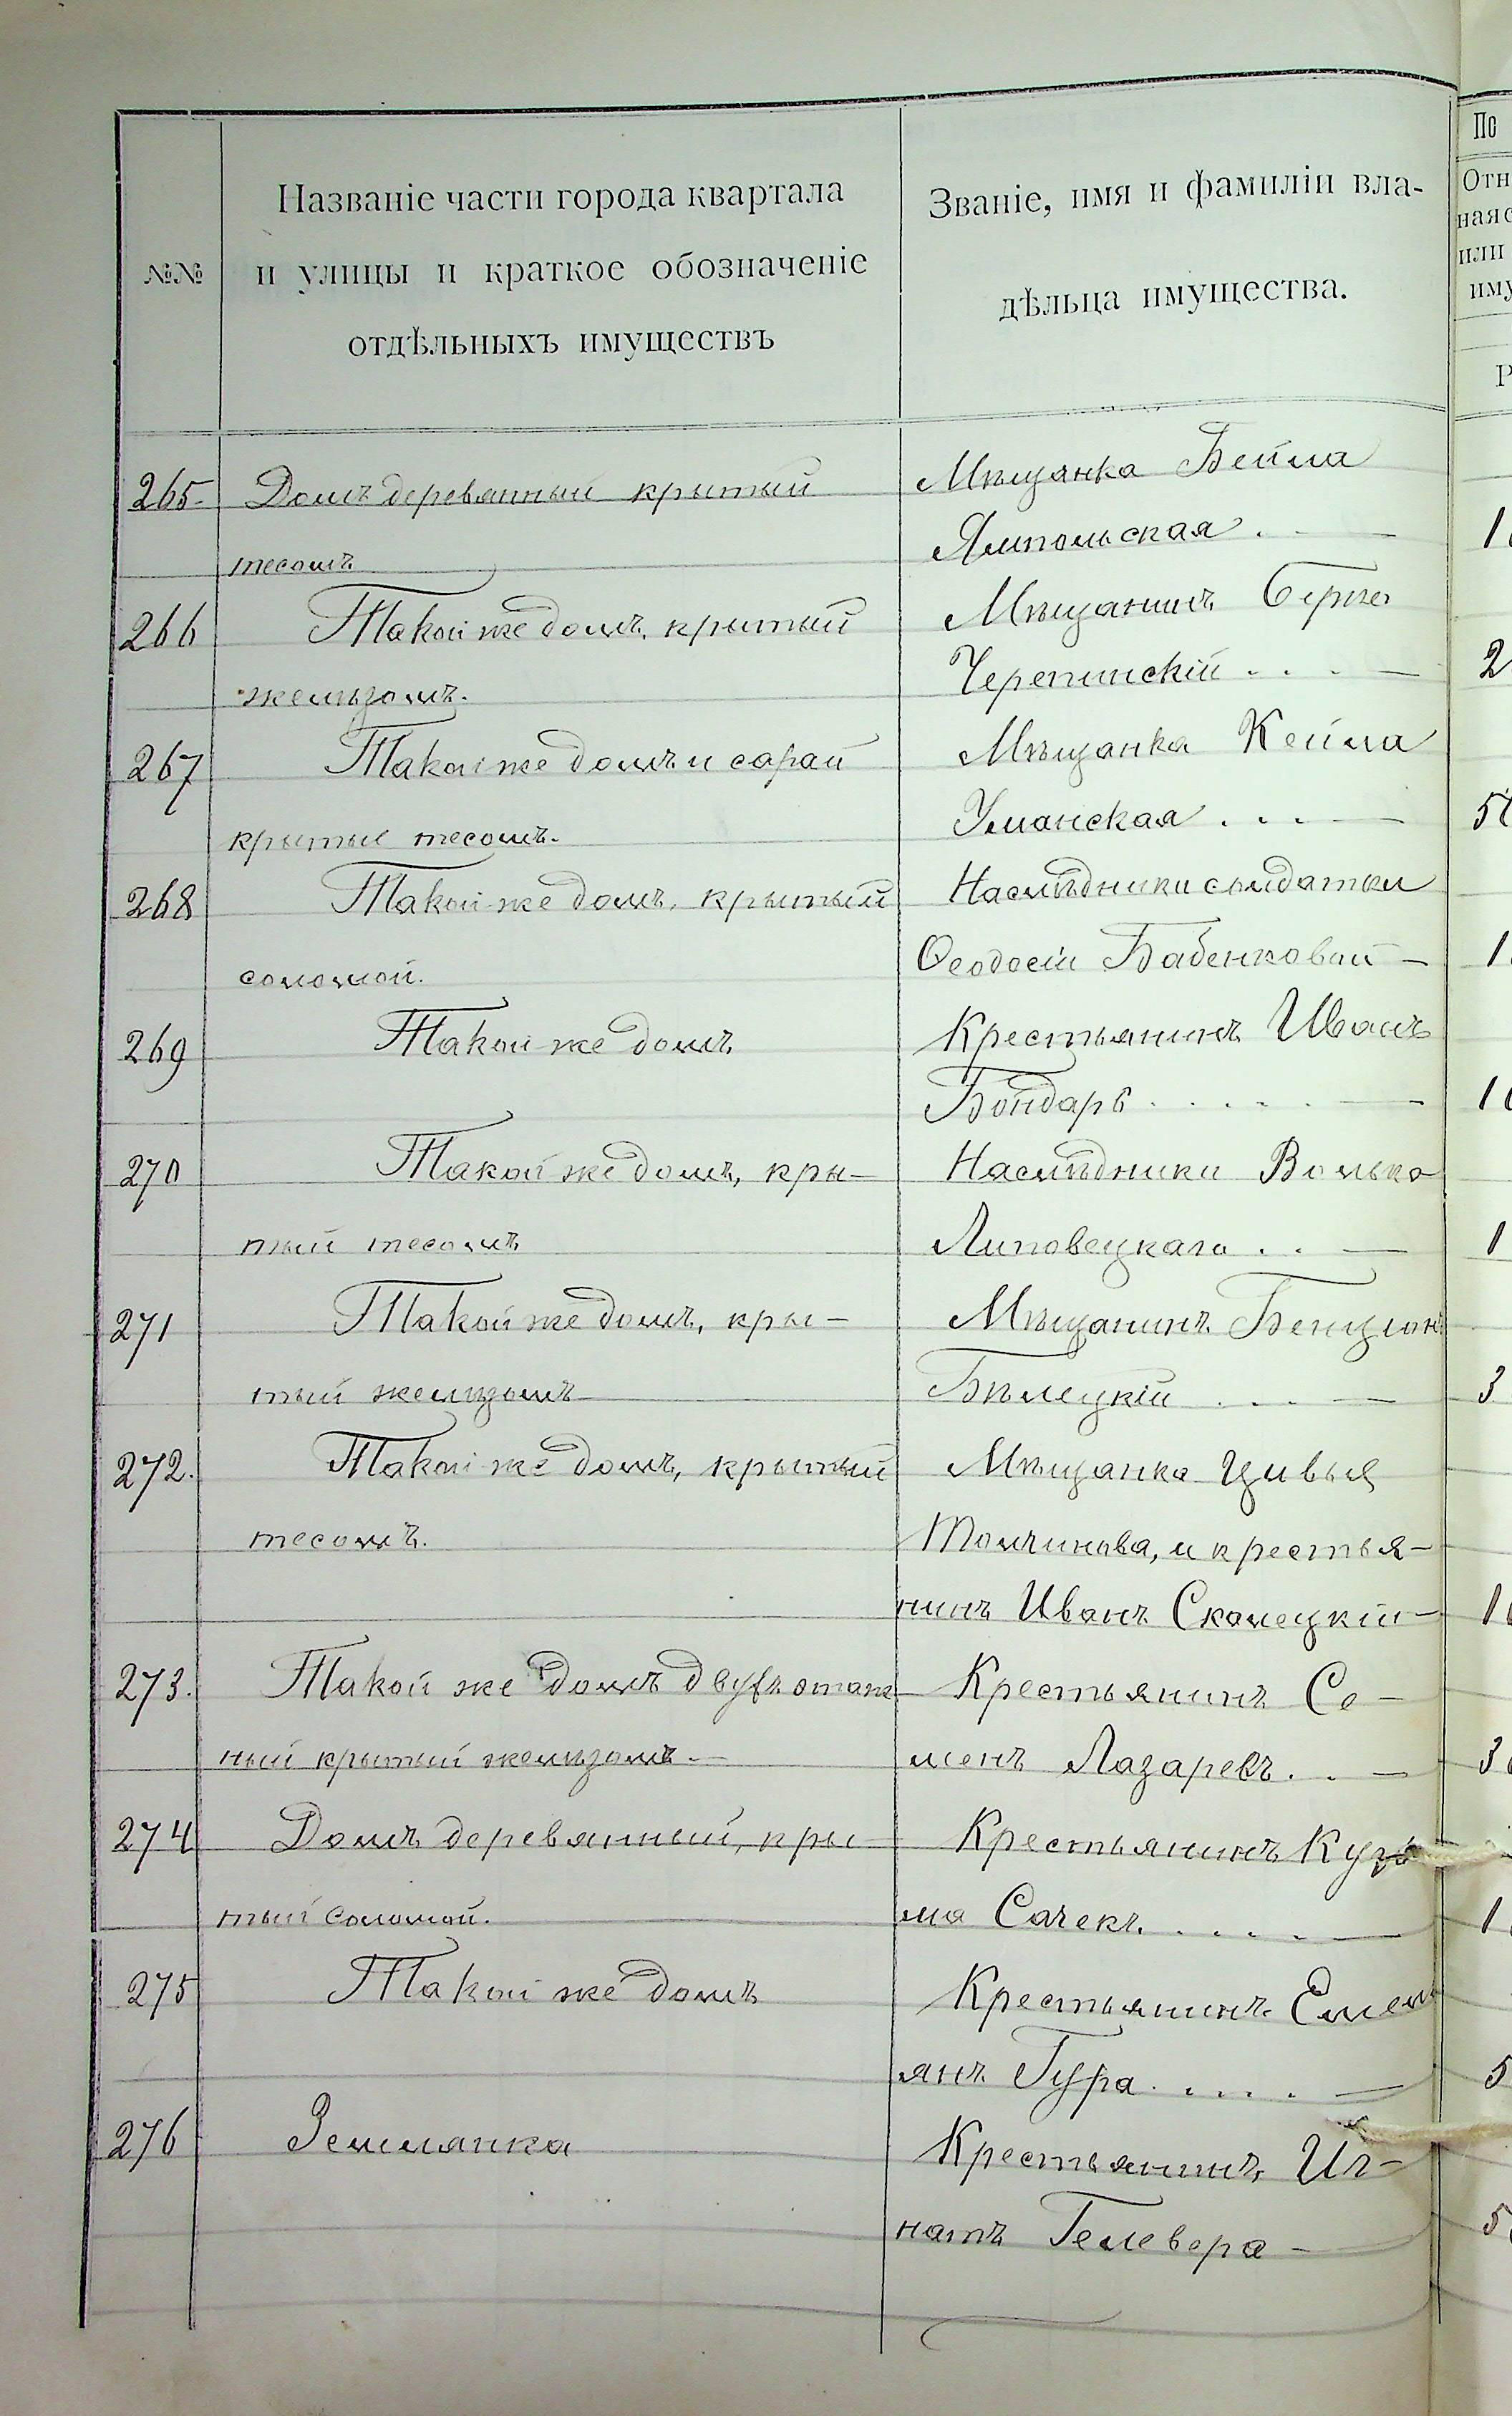 №№
Названіе части города квартала
и улицы и краткое обозначеніе
отдѣльныхъ имуществъ
Званіе, имя и фамиліи вла-
дѣльца имущества.
По
Отн
ная с
или
иму
Р
265. Домъ деревянный крытый Мѣщанка Бейла
тесомъ Ямпольская . — 1
266 Такой же домъ, крытый Мѣщанинъ Берко
желѣзомъ. Черепинскій . . . — 2
267 Такой же домъ и сарай Мѣщанка Кейла
крытые тесомъ. Уманская . . . — 5
268 Такой же домъ, крытый Наслѣдники солдатки
соломой. Ѳеодосіи Бабенковой — 1
269 Такой же домъ Крестьянинъ Иванъ
Бондарь . . . . . — 1
270 Такой же домъ, кры- Наслѣдники Волько
тый тесомъ Липовецкаго . . — 1
271 Такой же домъ, кры- Мѣщанинъ Бенціонъ
тый желѣзомъ Бѣлецкій . . . — 3
272. Такой же домъ, крытый Мѣщанка Цивья
тесомъ. Толчинова, и крестья-
нинъ Иванъ Скалецкій — 1
273. Такой же домъ двухъэтаж- Крестьянинъ Се-
ный крытый желѣзомъ. — менъ Лазаревъ . . — 3
274 Домъ деревянный, кры- Крестьянинъ Кузь
тый соломой. ма Сачекъ . . . . — 1
275 Такой же домъ Крестьянинъ Емель
янъ Гура . . . . . — 5
276 Землянка Крестьянинъ Иг-
натъ Гелевера — 5